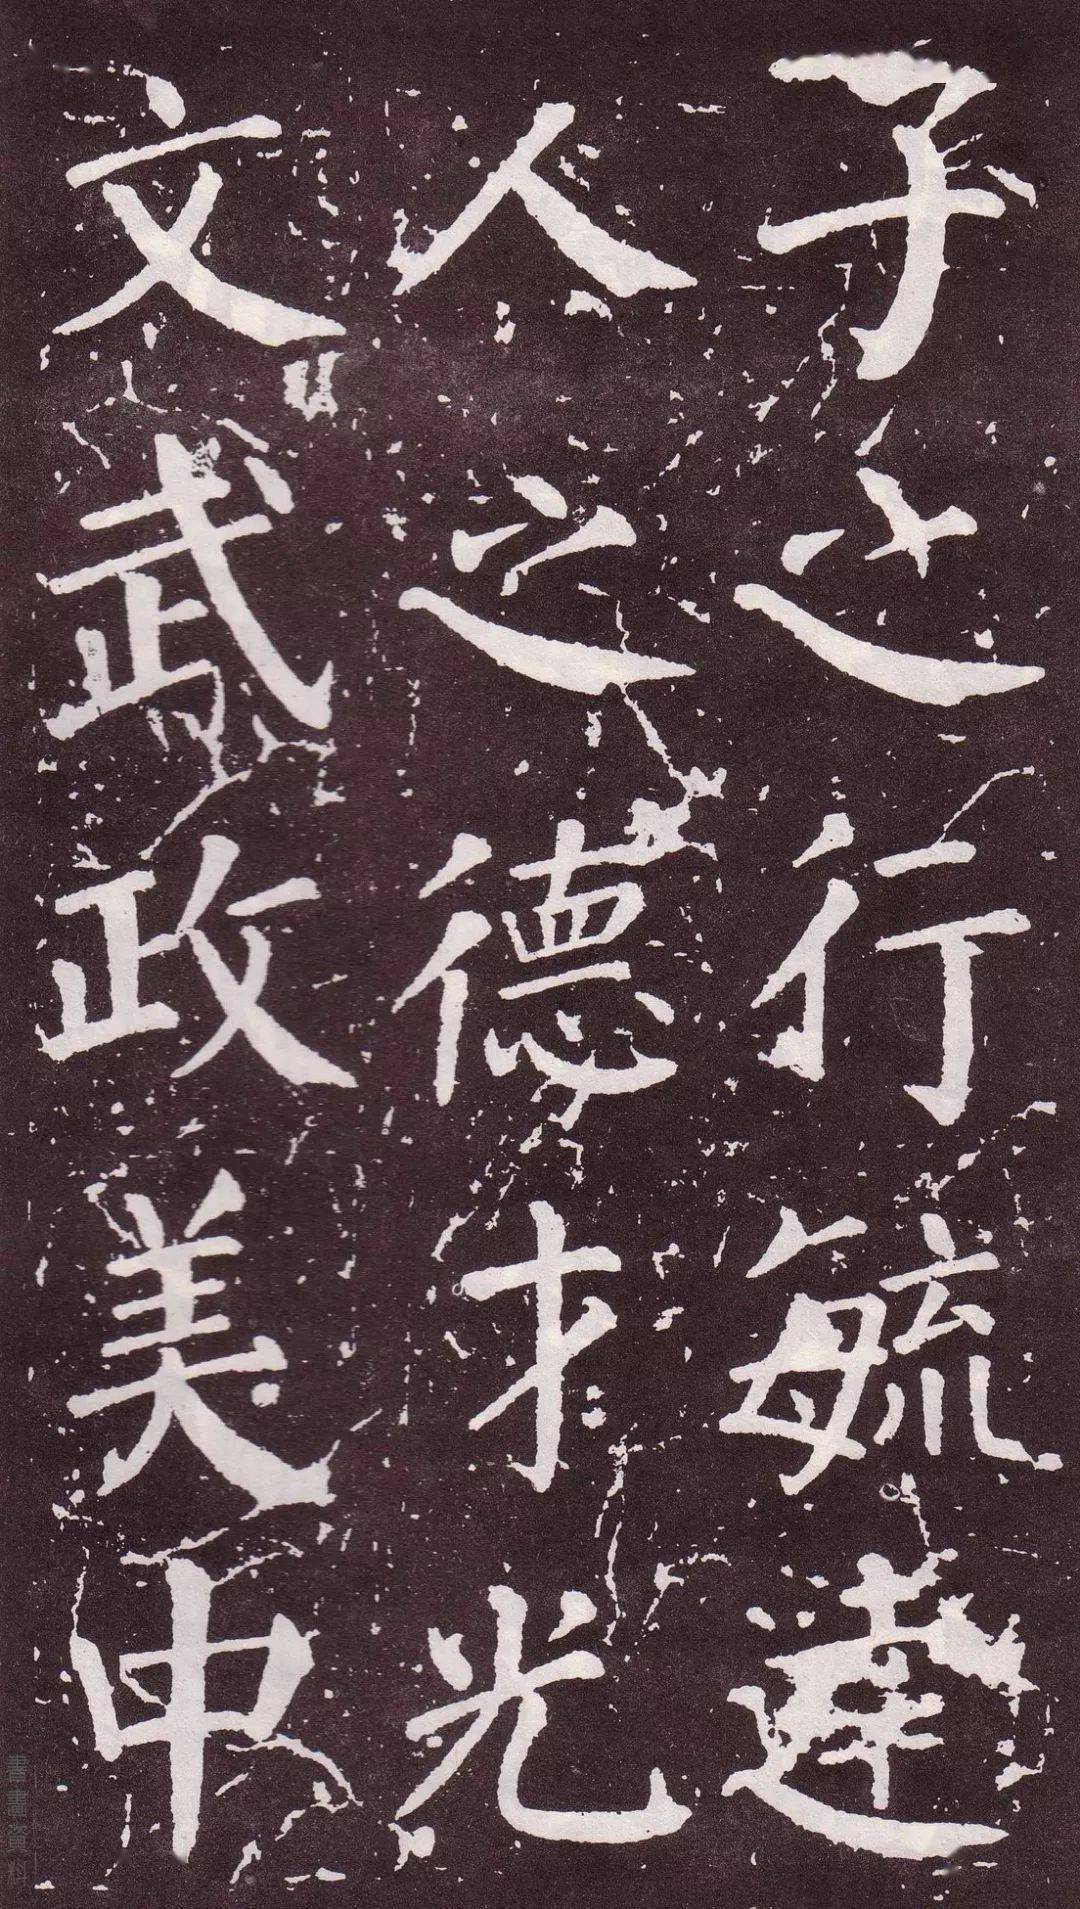 子之行毓達
人之德才光
文武政美中
書畫資料